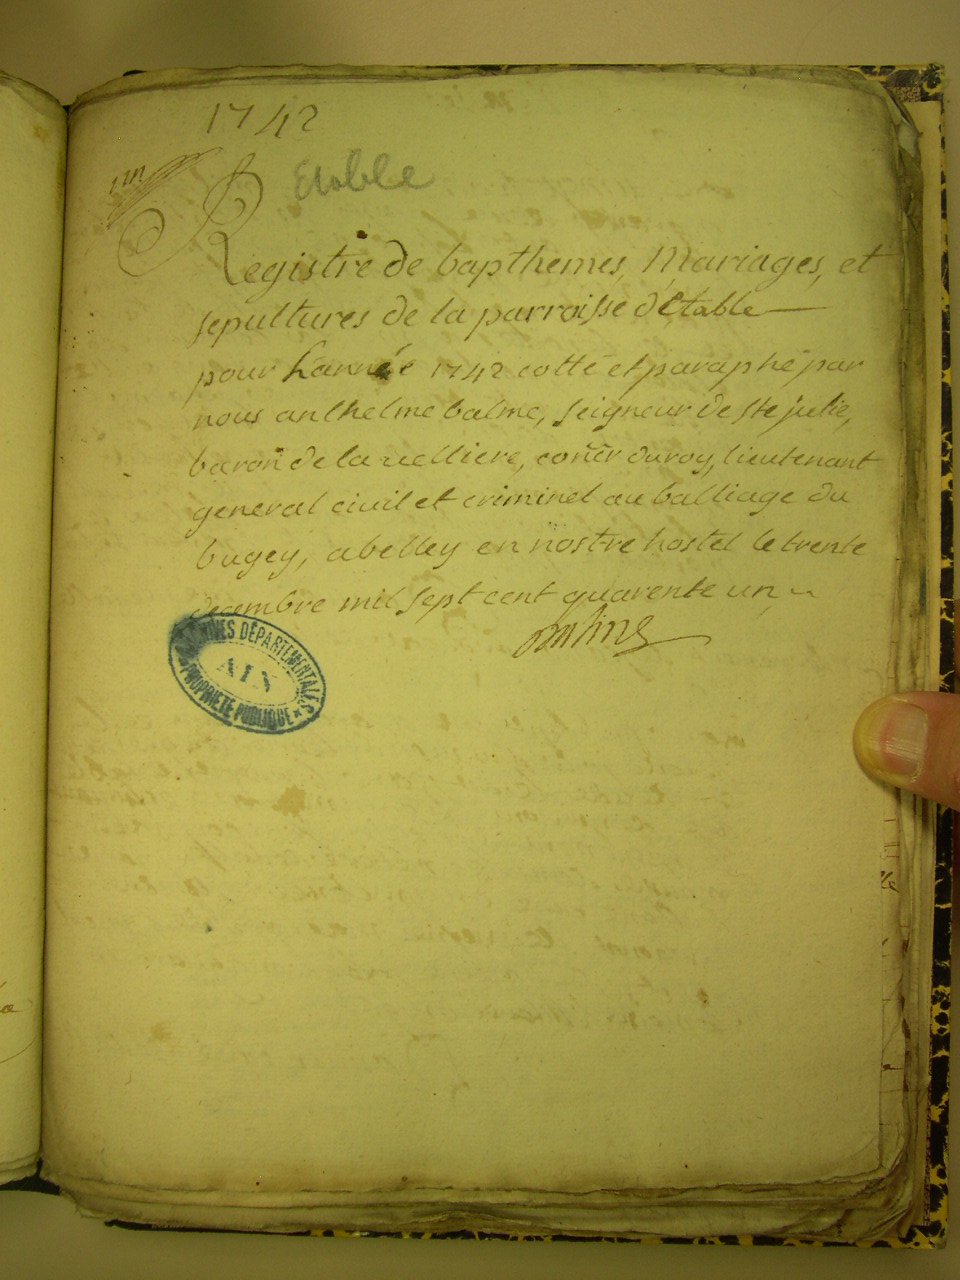 1742
Etable
Registre de bapthemes, Mariages, et
sepultures de la parroisse d'Etable
pour L'année 1742 cotté et paraphé par
nous anthelme balme, seigneur de ste julie,
baron de la velliere, coñer du roy, lieutenant
general civil et criminel au balliage du
bugey, a belley en nostre hostel le trente
decembre mil sept cent quarente un,
ARCHIVES DÉPARTEMENTALES
AIN
PROPRIÉTÉ PUBLIQUE